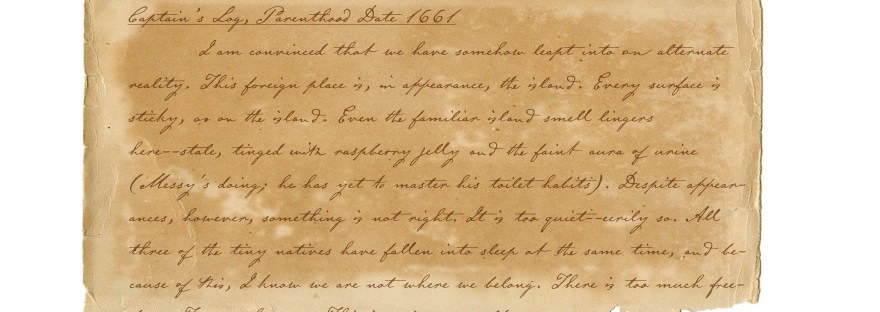 Captain's Log, Parenthood Date 1661
I am convinced that we have somehow leapt into an alternate
reality. This foreign place is, in appearance, the island. Every surface is
sticky, as on the island. Even the familiar island smell lingers
here--stale, tinged with raspberry jelly and the faint aura of urine
(Messy's doing; he has yet to master his toilet habits). Despite appear-
ances, however, something is not right. It is too quiet--eerily so. All
three of the tiny natives have fallen into sleep at the same time, and be-
cause of this, I know we are not where we belong. There is too much free-